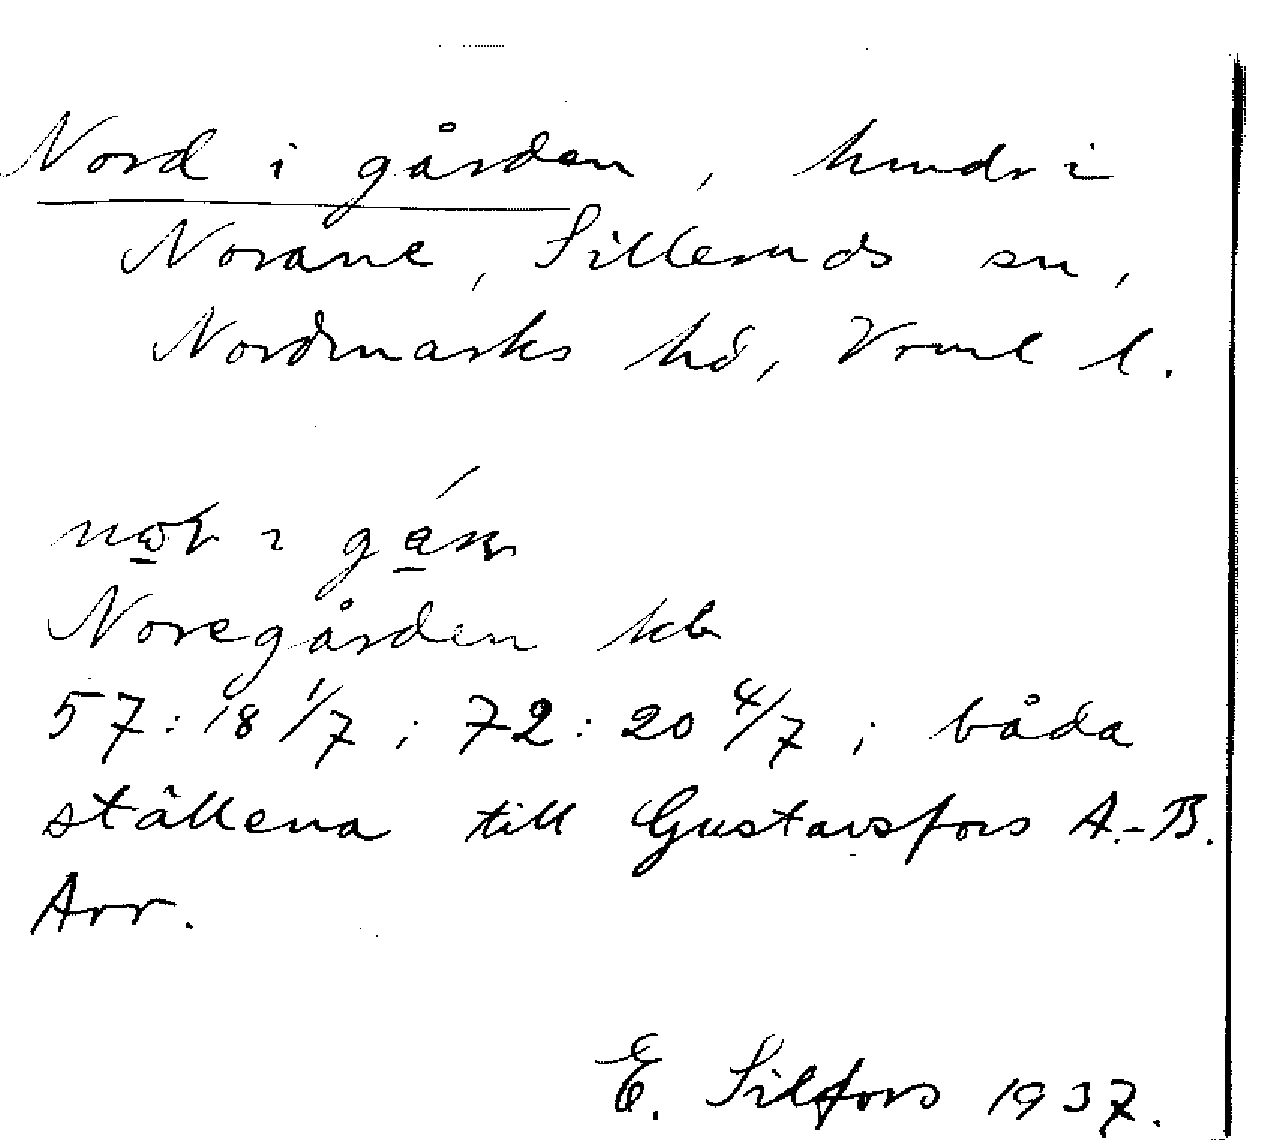 Nord i gården, hmdr i
Norane, Silleruds sn,
Nordmarks hd, Vrml l.
i
Noregården kb
57:18 1/7; 72:20 4/7; båda
ställena till Gustavsfors A.-B.
Arr.
E. Silfors 1937.